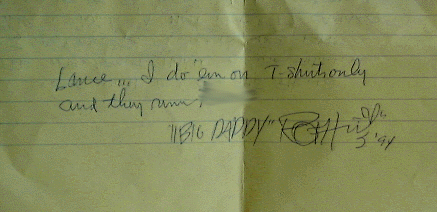 Lance,,, I do 'em on T-shirts only
and they run
"BIG DADDY" ROTH
'94